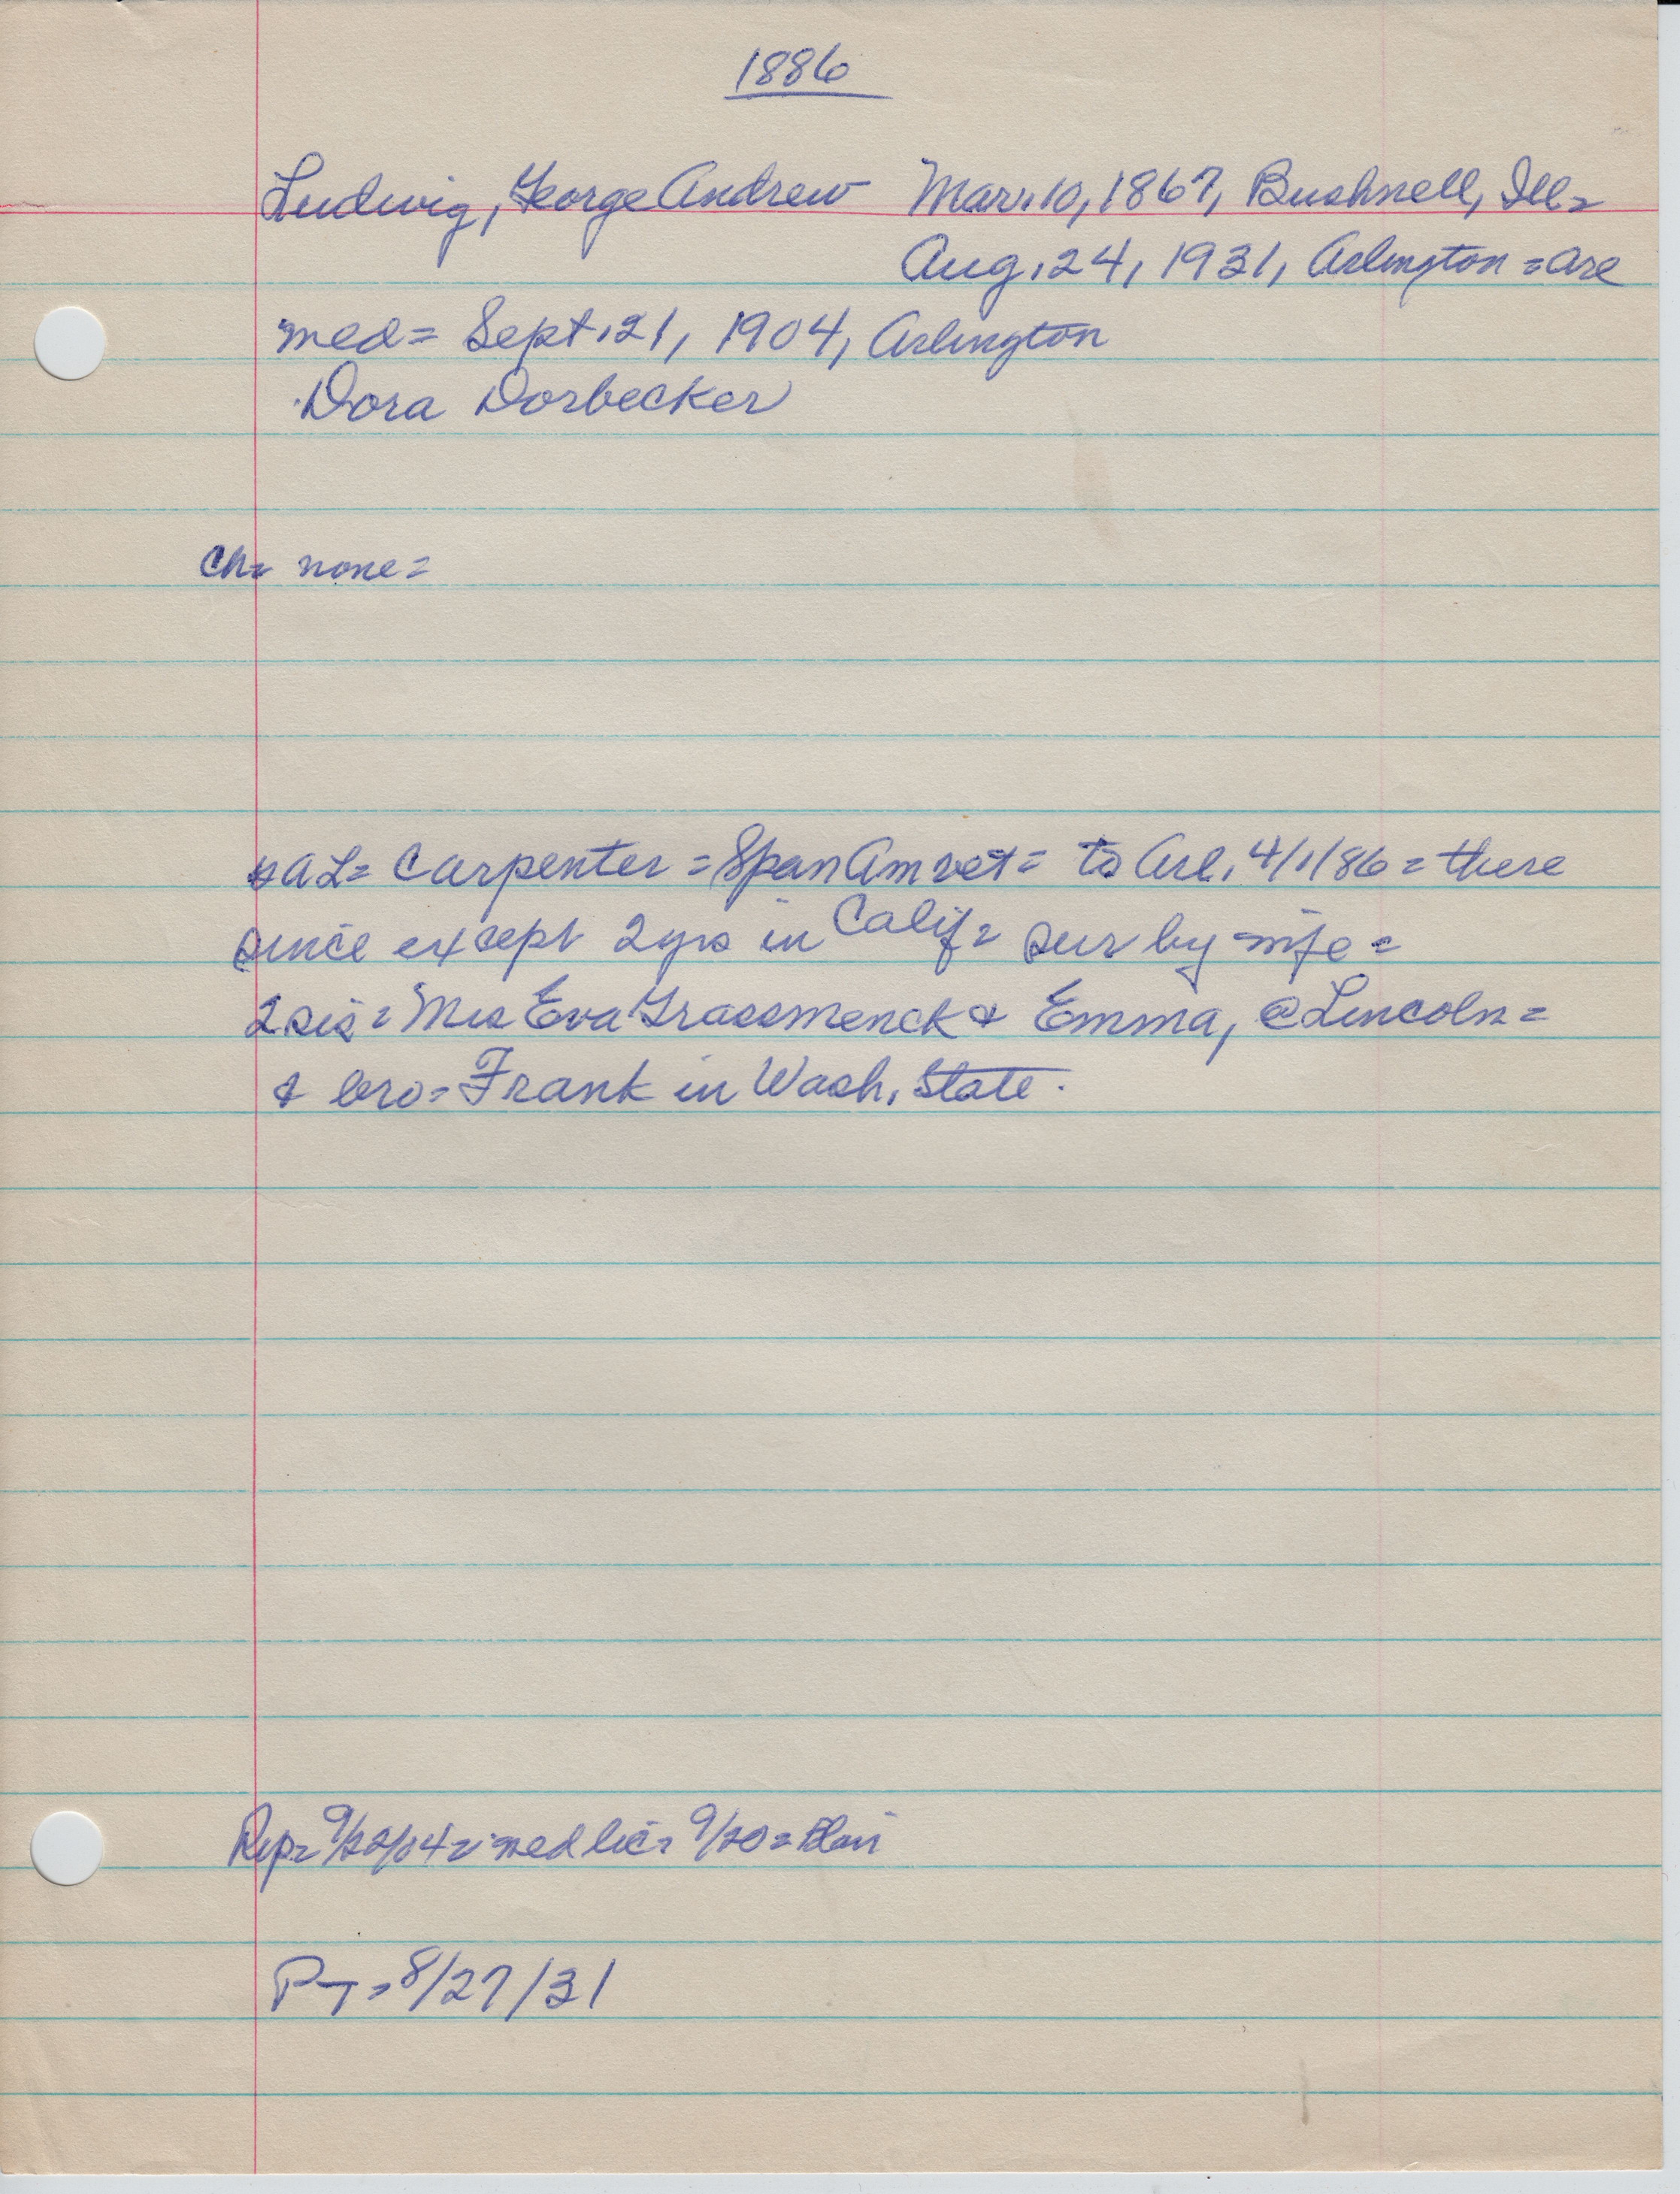 1886
Ludwig, George Andrew Mar. 10, 1867, Bushnell, Ill=
Aug. 24, 1931, Arlington = Arl
med= Sept. 21, 1904, Arlington
Dora Dorbecker
Ch= none=
GAL= Carpenter = Span Am vet = to Arl. 4/1/86 = there
since except 2 yrs in Calif = sur by wife =
2 sis = Mrs Eva Grassmenck & Emma, @ Lincoln =
& bro = Frank in Wash. State.
Rep= 9/22/04 = med lic= 9/20 = Blair
PT = 8/27/31